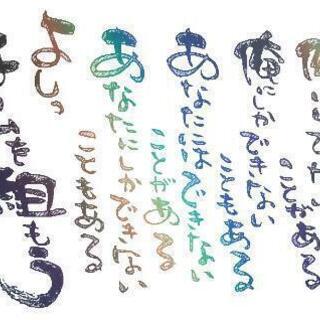 ことがある
俺にしかできない
こともある
あなたにはできない
ことがある
あなたにしかできない
こともある
よしっ
組もう